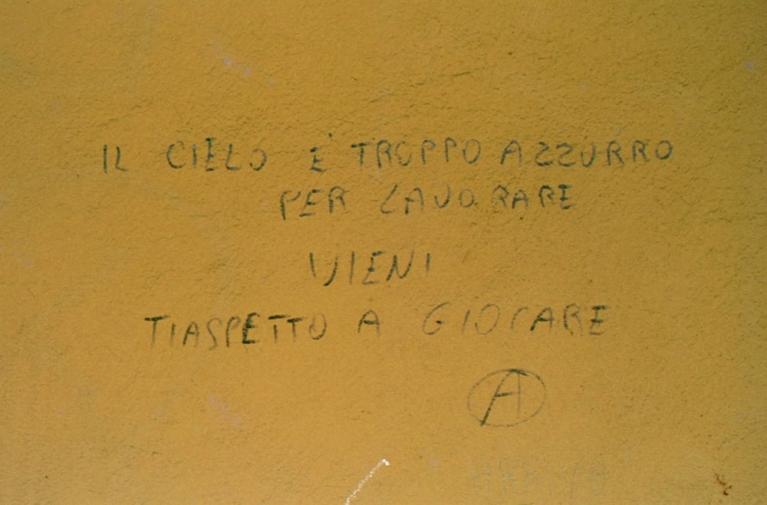 IL CIELO E' TROPPO AZZURRO
PER LAVORARE
VIENI
TIASPETTO A GIOCARE
A